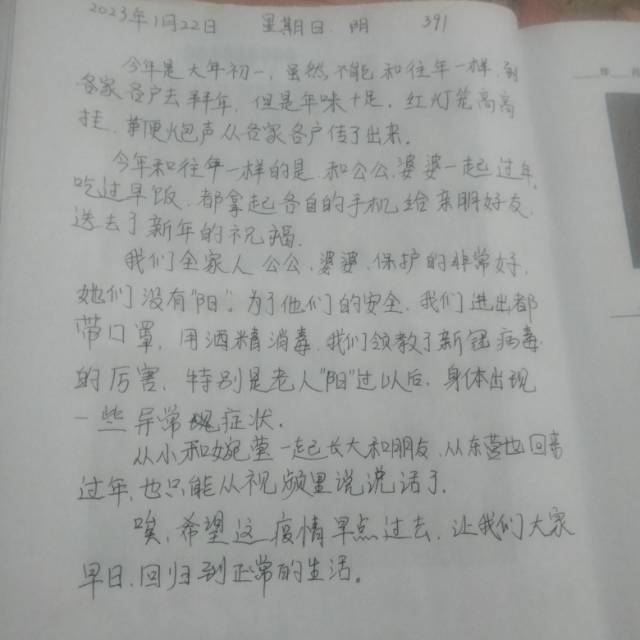 2023年1月22日 星期日 阴 391
今年是大年初一,虽然不能和往年一样,到
各家各户去拜年,但是年味十足,红灯笼高高
挂,鞭炮声从各家各户传了出来。
今年和往年一样的是,和公公,婆婆一起过年,
吃过早饭,都拿起各自的手机,给亲朋好友,
送去了新年的祝福。
我们全家人公公、婆婆、保护的非常好,
她们没有“阳”,为了他们的安全,我们进出都
带口罩,用酒精消毒,我们领教了新冠病毒
的厉害,特别是老人“阳”过以后,身体出现
一些异常症状。
从小和婉莹一起长大和朋友,从东营也回离
过年,也只能从视频里说说话了。
唉,希望这疫情早点过去,让我们大家
早日,回归到正常的生活。